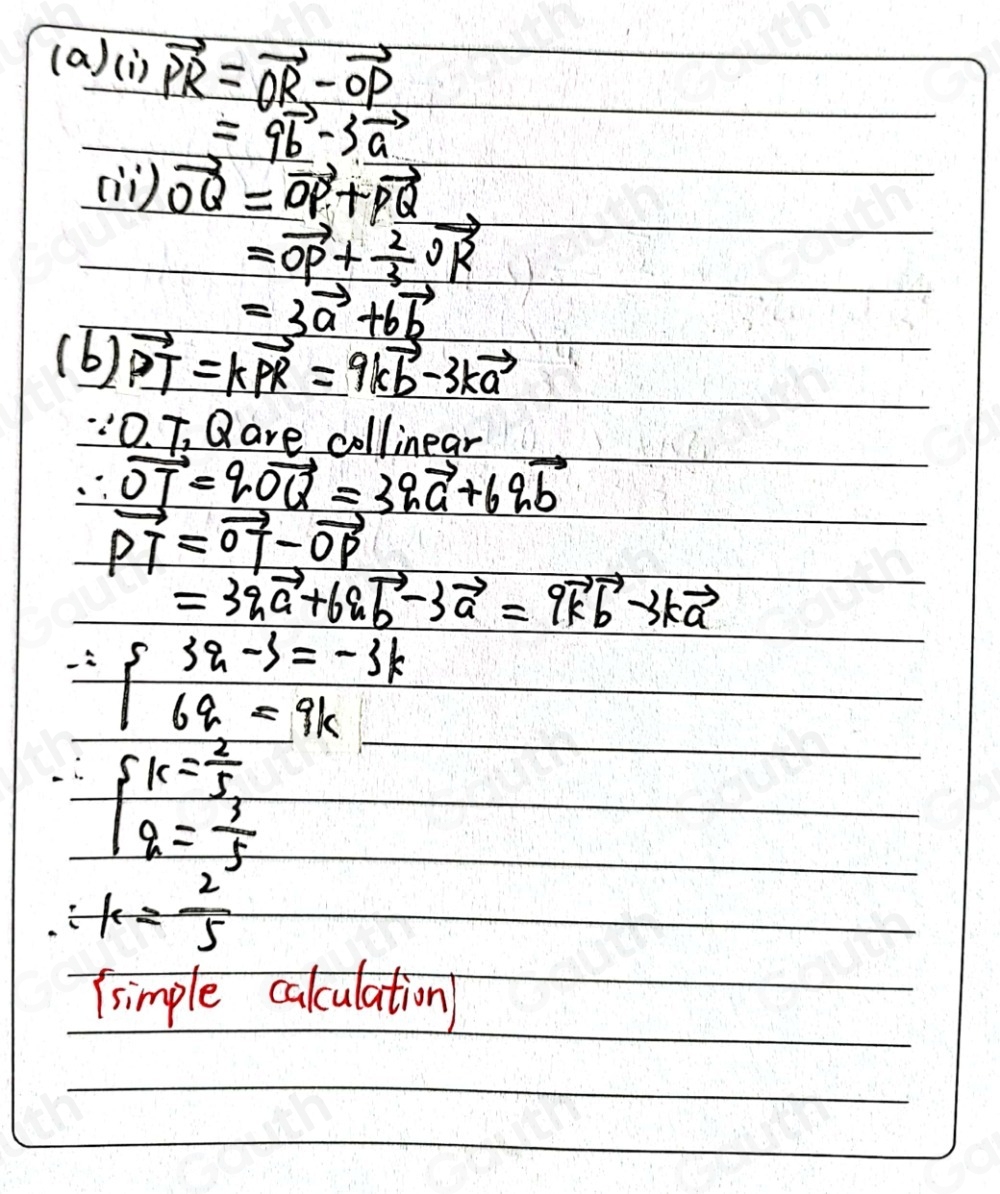 (a)(i) $\overrightarrow{PR} = \overrightarrow{OR} - \overrightarrow{OP}$
$= 9\overrightarrow{b} - 3\overrightarrow{a}$
(ii) $\overrightarrow{OQ} = \overrightarrow{OP} + \overrightarrow{PQ}$
$= \overrightarrow{OP} + \frac{2}{3} \overrightarrow{OR}$
$= 3\overrightarrow{a} + 6\overrightarrow{b}$
(b) $\overrightarrow{PT} = k\overrightarrow{PR} = 9k\overrightarrow{b} - 3k\overrightarrow{a}$
∵ O. T, Q are collinear
∴ $\overrightarrow{OT} = q\overrightarrow{OQ} = 3q\overrightarrow{a} + 6q\overrightarrow{b}$
$\overrightarrow{PT} = \overrightarrow{OT} - \overrightarrow{OP}$
$= 3q\overrightarrow{a} + 6q\overrightarrow{b} - 3\overrightarrow{a} = 9\overrightarrow{k}\overrightarrow{b} - 3k\overrightarrow{a}$
∴ { 3q - 3 = -3k
6q = 9k
∴ { $k = \frac{2}{5}$
$q = \frac{3}{5}$
∴ $k = \frac{2}{5}$
(simple calculation)
Gauth